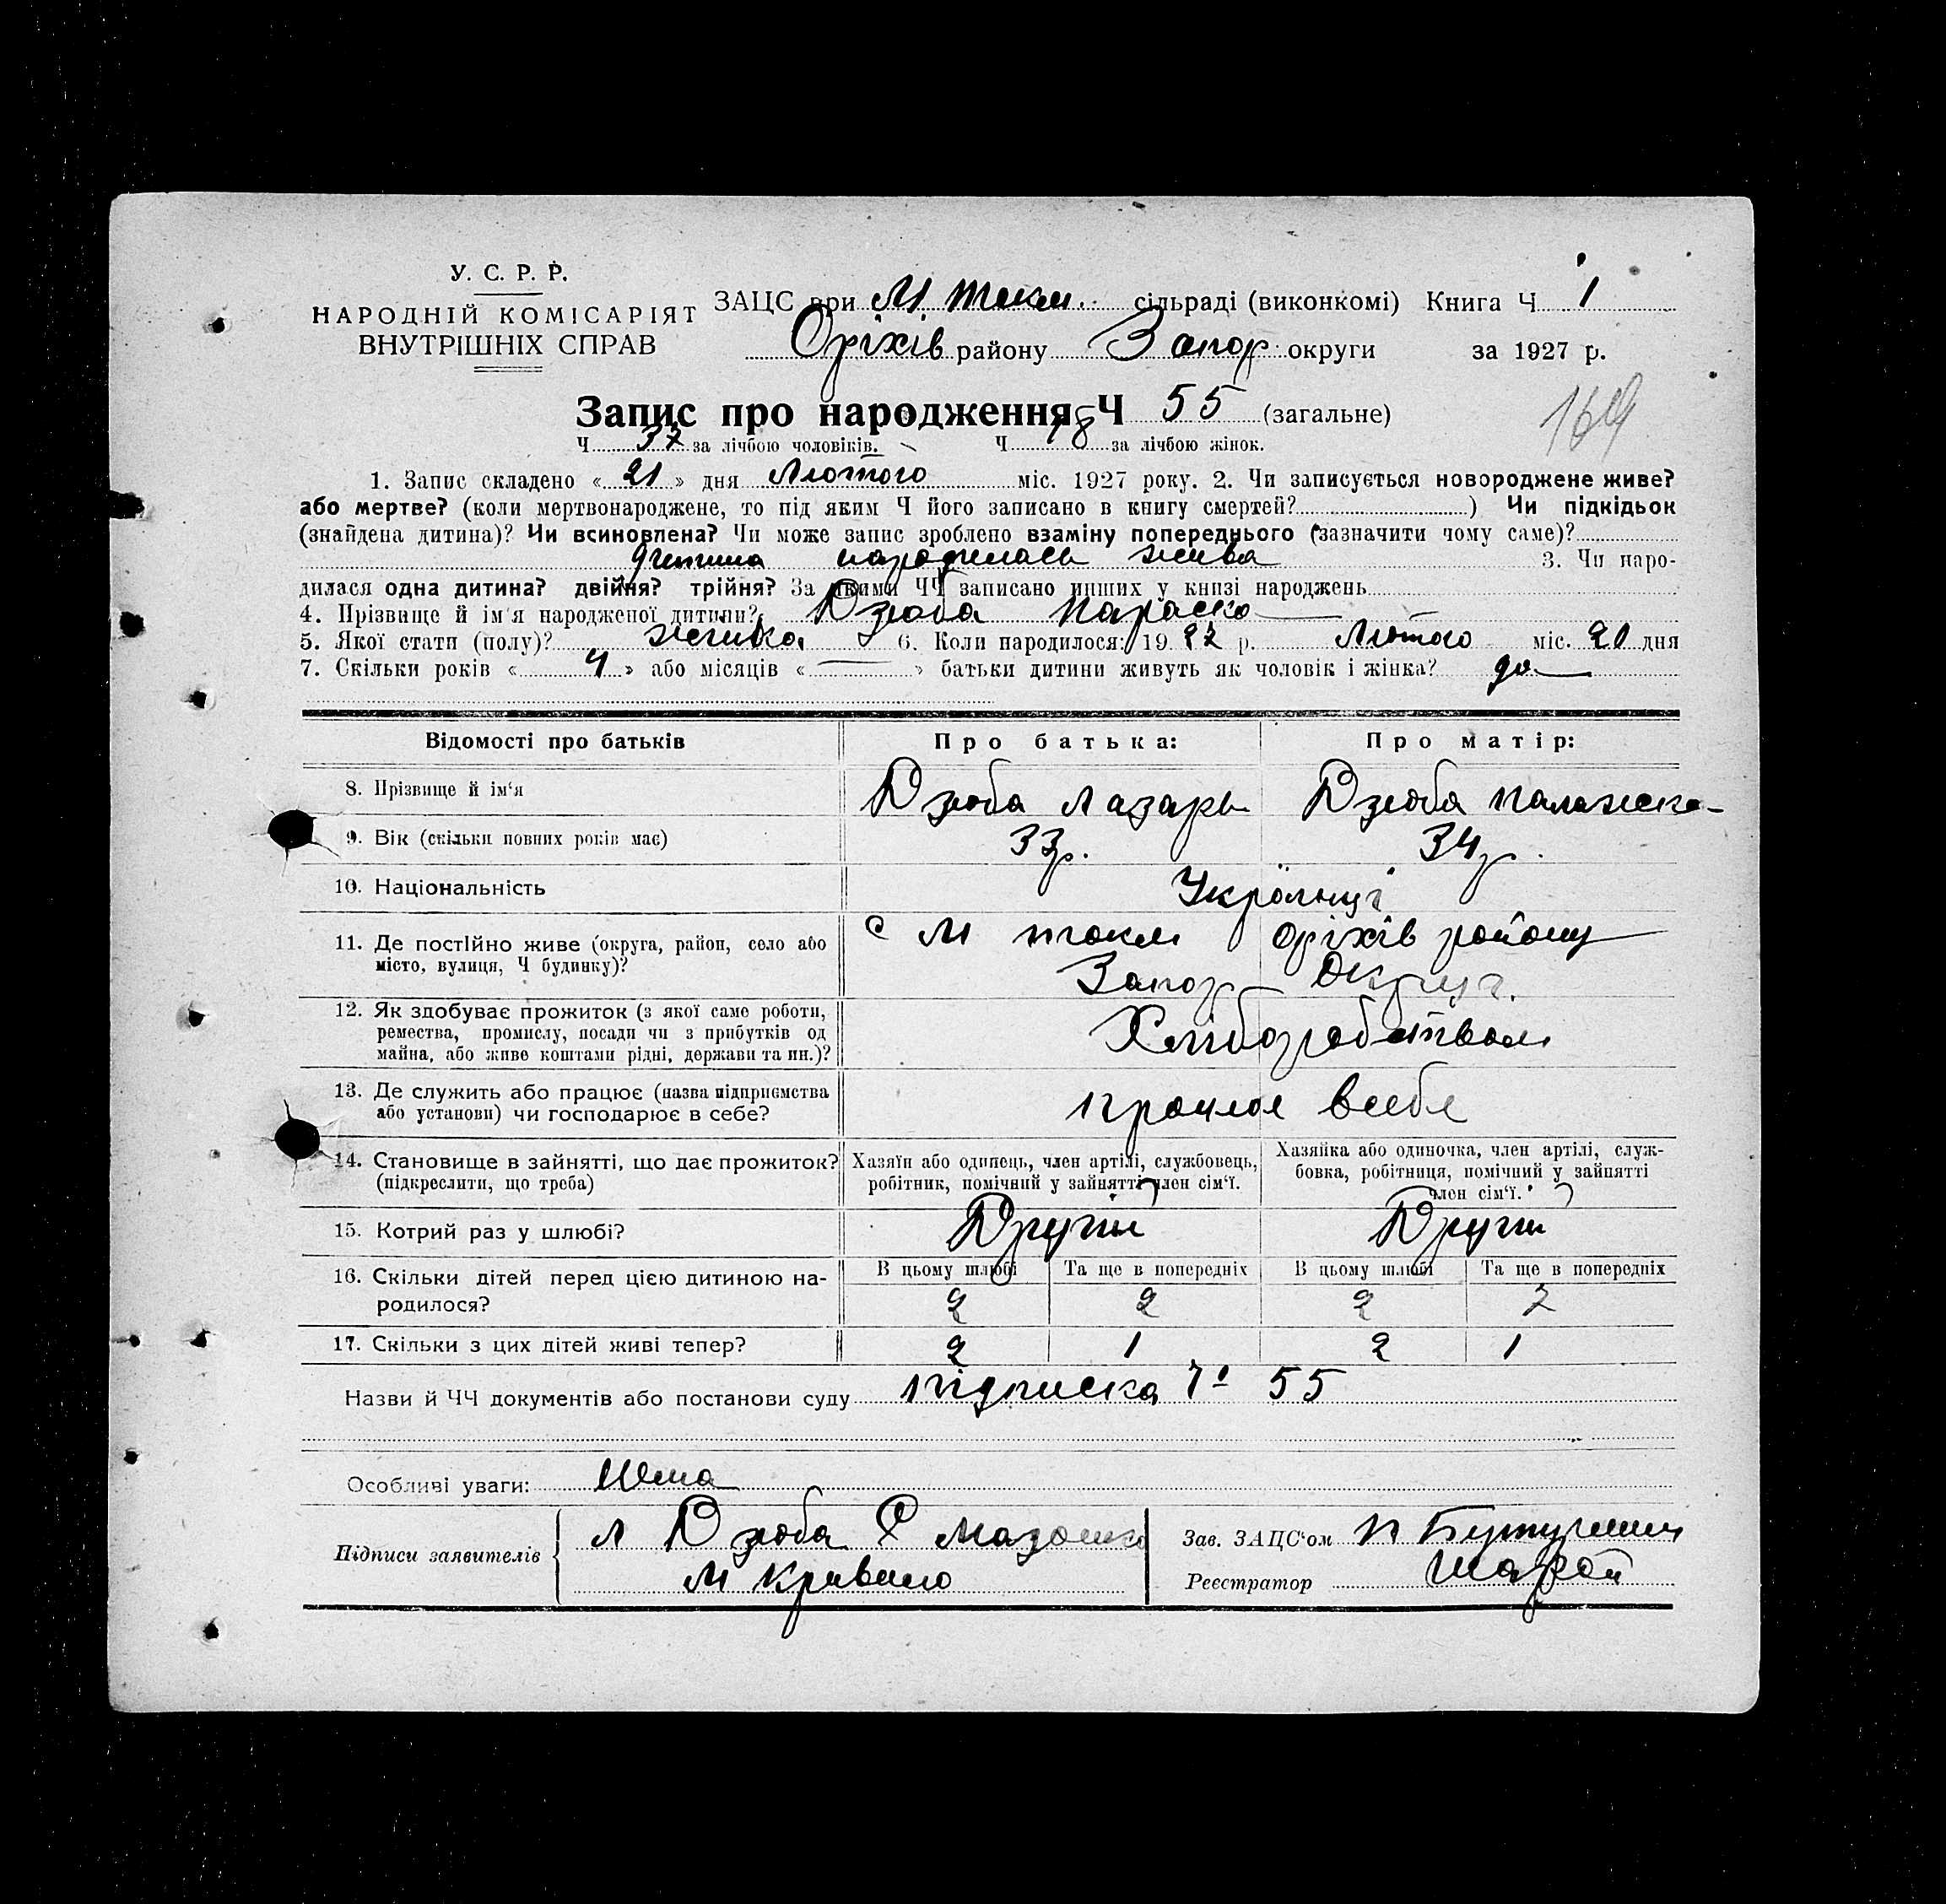 У. С. Р. Р.
НАРОДНІЙ КОМІСАРІЯТ
ВНУТРІШНІХ СПРАВ
ЗАЦС при М. Токм. сільраді (виконкомі) Книга Ч 1
Оріхів району Запор. округи за 1927 р.
164
Запис про народження Ч 55 (загальне)
Ч 37 за лічбою чоловіків. Ч 18 за лічбою жінок.
1. Запис складено « 21 » дня Лютого міс. 1927 року. 2. Чи записується новороджене живе?
або мертве? (коли мертвонароджене, то під яким Ч його записано в книгу смертей? ) Чи підкідьок
(знайдена дитина)? Чи всиновлена? Чи може запис зроблено взаміну попереднього (зазначити чому саме)?
дитина народилась жива 3. Чи наро-
дилася одна дитина? двійня? трійня? За якими ЧЧ записано инших у книзі народжень
4. Прізвище й ім'я народженої дитини? Дзюба Параска
5. Якої стати (полу)? жінка 6. Коли народилося: 19 27 р. Лютого міс. 20 дня
7. Скільки років « 4 » або місяців « — » батьки дитини живуть як чоловік і жінка? да
Відомості про батьків Про батька: Про матір:
8. Прізвище й ім'я Дзюба Лазарь Дзюба Палажка
9. Вік (скільки повних років має) 33 р. 34 р.
10. Національність Українці
11. Де постійно живе (округа, район, село або місто, вулиця, Ч будинку)? с М Токм Оріхів району
Запор Округ.
12. Як здобуває прожиток (з якої саме роботи, ремества, промислу, посади чи з прибутків од майна, або живе коштами рідні, держави та ин.)? Хліборобством
13. Де служить або працює (назва підприємства або установи) чи господарює в себе? працює в себе
14. Становище в зайнятті, що дає прожиток? (підкреслити, що треба) Хазяїн або одинець, член артілі, службовець, робітник, помічний у зайнятті член сім'ї. Хазяйка або одиночка, член артілі, служ-
бовка, робітниця, помічний у зайнятті
член сім'ї.
15. Котрий раз у шлюбі? Другий Другий
16. Скільки дітей перед цією дитиною на-
родилося? В цьому шлюбі 2 Та ще в попередніх 2 В цьому шлюбі 2 Та ще в попередніх 2
17. Скільки з цих дітей живі тепер? 2 1 2 1
Назви й ЧЧ документів або постанови суду підписка 55
Особливі уваги: Нема
Підписи заявителів Л Дзюба
Зав. ЗАЦС'ом
Реєстратор